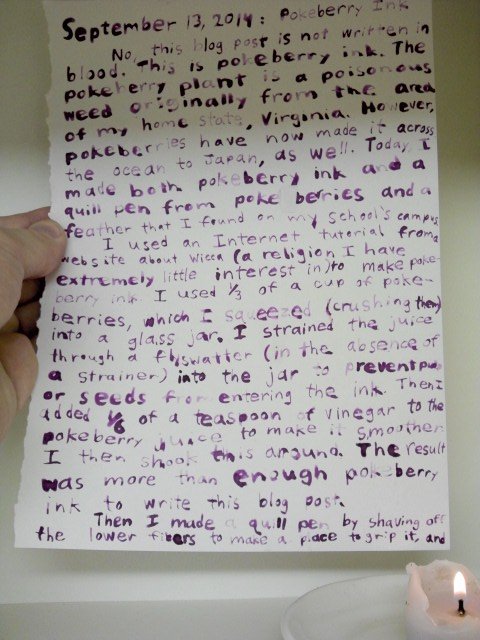 September 13, 2014: Pokeberry Ink
No, this blog post is not written in
blood. This is pokeberry ink. The
pokeberry plant is a poisonous
weed originally from the area
of my home state, Virginia. However,
pokeberries have now made it across
the ocean to Japan, as well. Today, I
made both pokeberry ink and a
quill pen from poke berries and a
feather that I found on my school's campus
I used an Internet tutorial from a
website about Wicca (a religion I have
extremely little interest in) to make poke-
berry ink. I used 1/3 of a cup of poke-
berries, which I squeezed (crushing them)
into a glass jar. I strained the juice
through a flyswatter (in the absence of
a strainer) into the jar to prevent pulp
or seeds from entering the ink. Then I
added 1/6 of a teaspoon of vinegar to the
pokeberry juice to make it smoother
I then shook this around. The result
was more than enough pokeberry
ink to write this blog post.
Then I made a quill pen by shaving off
the lower fibers to make a place to grip it, and